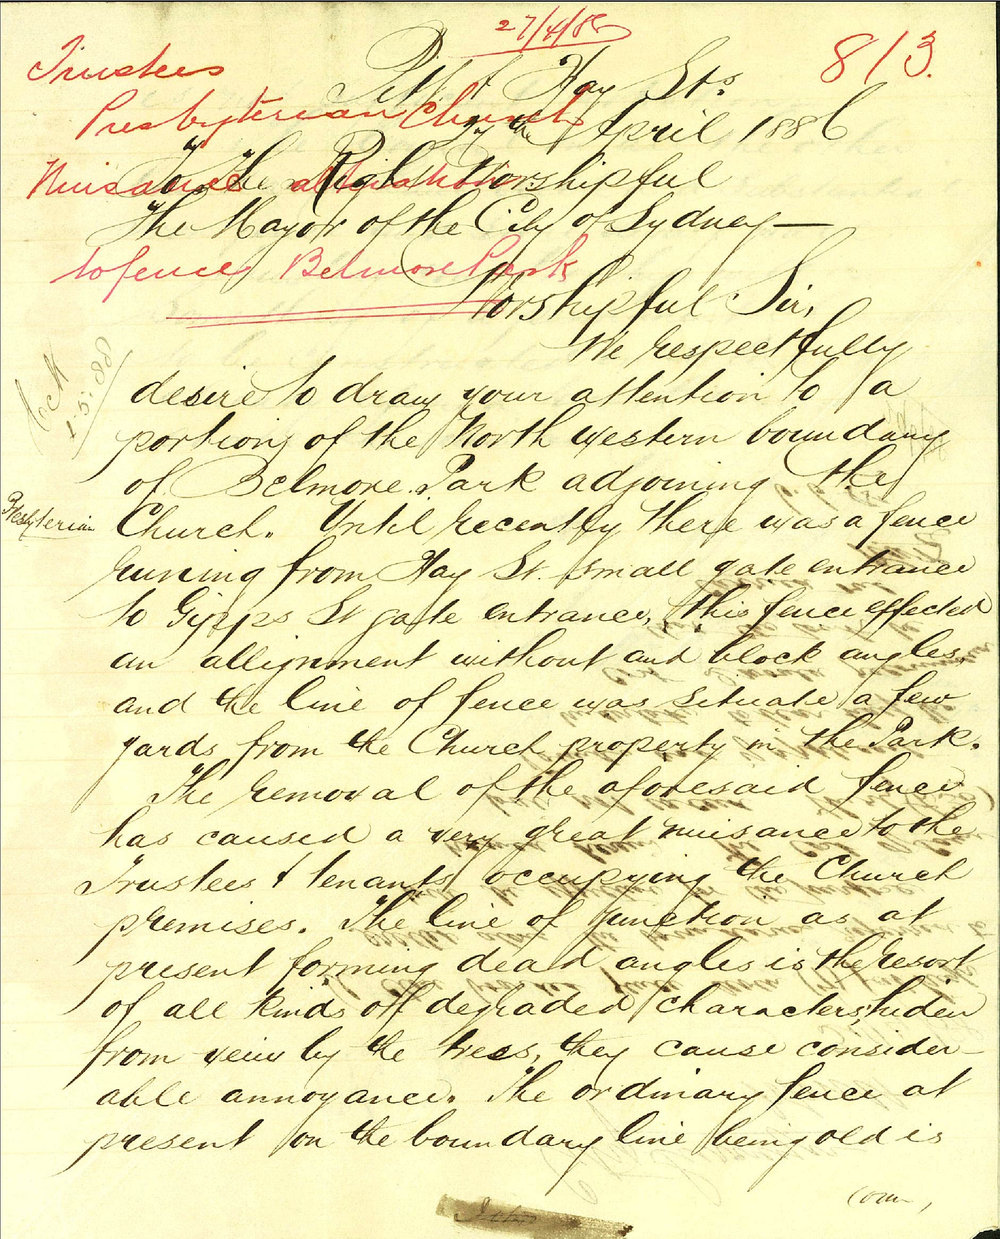 27/4/86
813.
Trustees
Presbyterian Church
Nuisance
to fence Belmore Park
Pitt & Hay Sts
April 1886
To the Right Worshipful
The Mayor of the City of Sydney—
Worshipful Sir,
We respectfully
desire to draw your attention to a
portion of the North western boundary
of Belmore Park adjoining the
Presbyterian
Church. Until recently there was a fence
runing from Hay St. small gate entrance
to Gipps St gate entrance, this fence effected
an allignment without and block angles,
and the line of fence was situate a few
yards from the Church property in the Park.
The removal of the aforesaid fence
has caused a very great nuisance to the
Trustees & tenants occupying the Church
premises. The line of junction as at
present forming dead angles is the resort
of all kinds of degraded characters, hiden
from veiw by the trees, they cause consider-
able annoyance. The ordinary fence at
present on the boundary line being old is